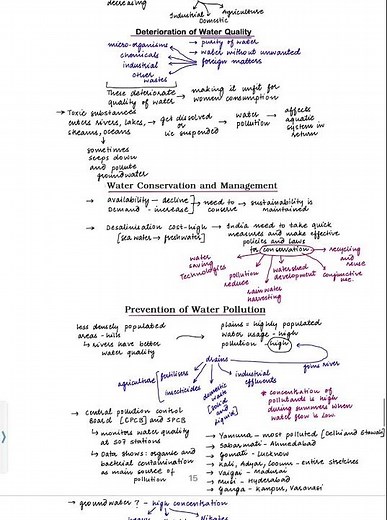 decreasing
Industrial Agriculture
Domestic
Deterioration of Water Quality
micro-organisms → purity of water
chemicals → water without unwanted
industrial foreign matters
other
wastes
These deteriorate → making it unfit for
quality of water women consumption
→ Toxic substances
enters rivers, lakes, → get dissolved → water → affects
streams, oceans or pollution aquatic
lie suspended system in
return
sometimes
seeps down
and pollute
groundwater
Water Conservation and Management
→ availability - decline → need to → sustainability is
Demand - increase conserve maintained
→ Desalinisation cost-high → India need to take quick
[sea water → freshwater] measures and make effective
policies and laws
for conservation → recycling
and reuse
water
saving
Technologies
pollution
reduce
watershed
development
conjunctive
use.
rainwater
harvesting
Prevention of Water Pollution
less densely populated
areas - hills
↳ rivers have better
water quality
plains = highly populated
water usage - high
pollution - high
drains
joins river
agriculture
fertilisers
insecticides
domestic
waste
[solid
and
liquid]
industrial
effluents
* concentration of
pollutants is high
during summers when
water flow is low
→ central pollution control
Board [CPCB] and SPCB
↳ monitors water quality
at 507 stations
↳ Data shows: organic and
bacterial contamination
as main source of
pollution
→ Yamuna - most polluted [Delhi and Etawah]
→ Sabarmati - Ahmedabad
→ Gomati - Lucknow
→ Kali, Adyar, Cooum - entire stretches
→ Vaigai - Madurai
→ Musi - Hyderabad
→ Ganga - Kanpur, Varanasi
15
→ groundwater? - high concentration
heavy Nitrates